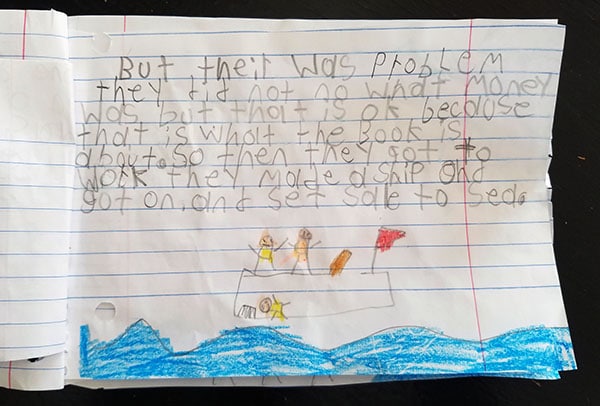 But their was problem
they did not no what money
was but that is ok becaose
that is what the Book is
about. So then they got to
work they made a ship and
got on. and set sale to sea.